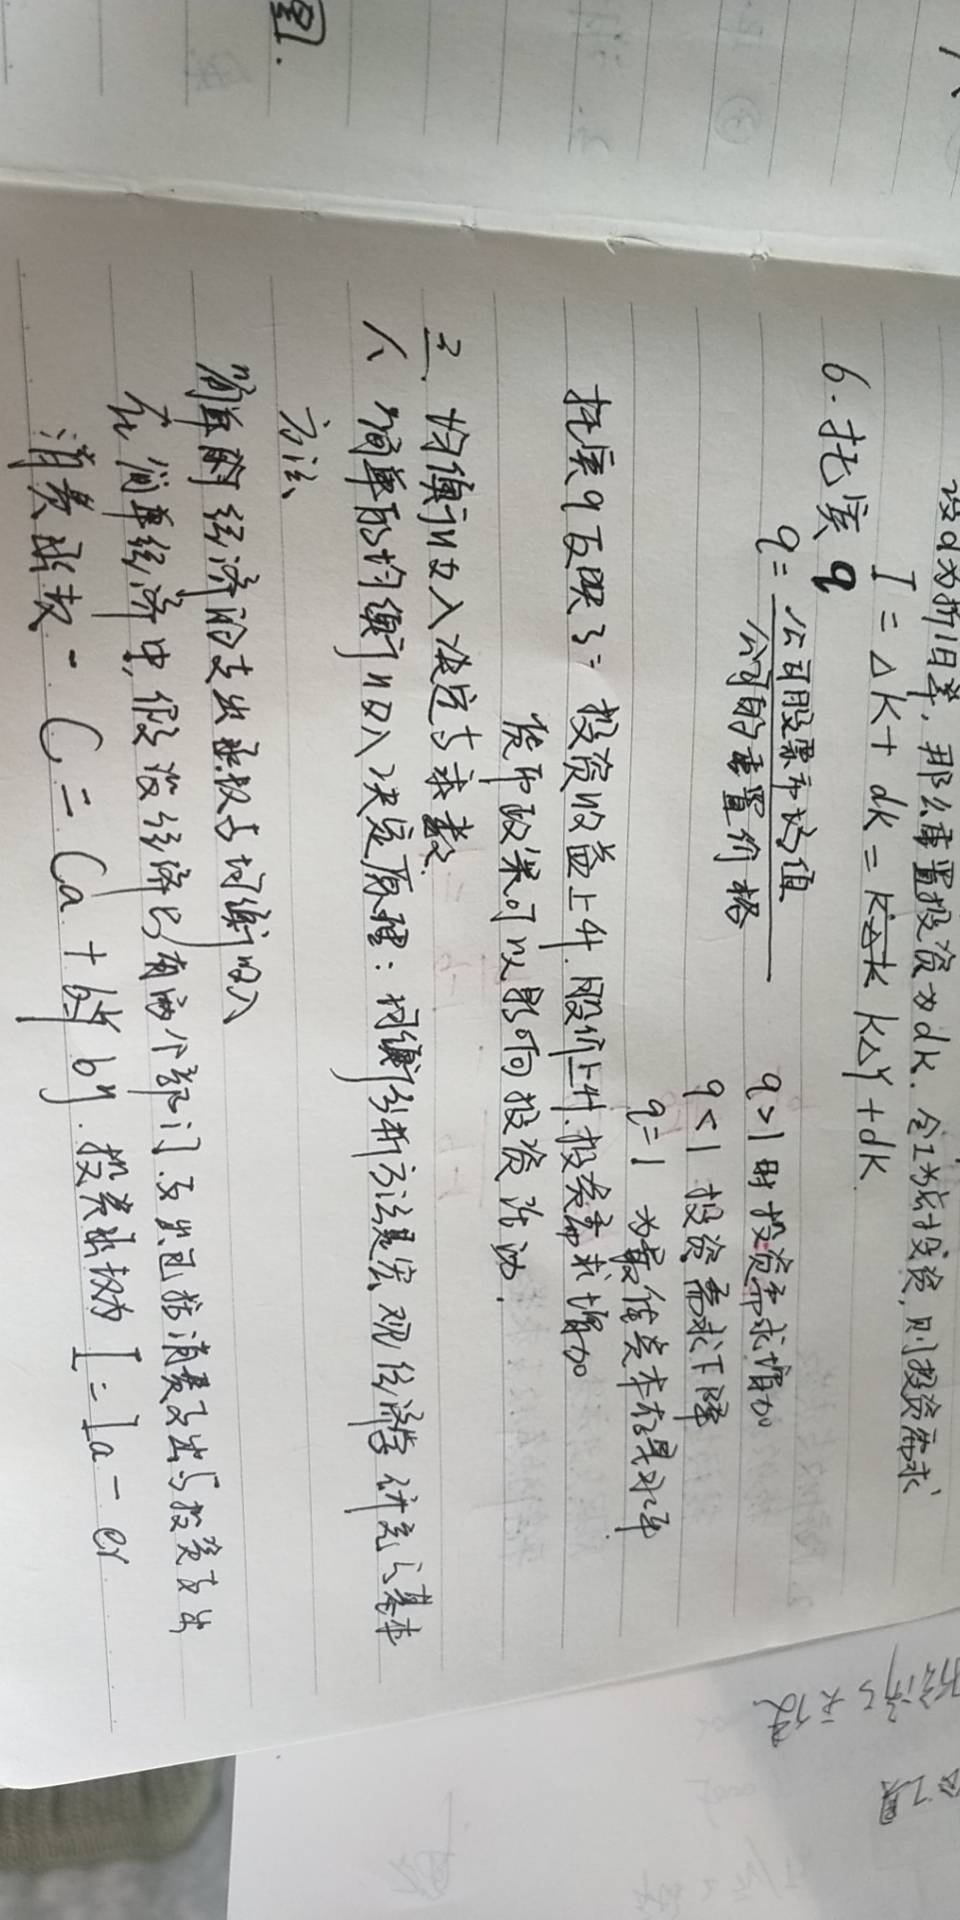 设d为折旧率，那么重置投资为dk. 令I为总投资，则投资需求
I = △k + dk = k△k k△Y + dk
6. 托宾q
q = 公司股票市场值 / 公司的重置价格
q>1时投资需求增加
q<1 投资需求下降
q=1 为最佳资本存量水平
托宾q反映了：投资收益上升.股价上升.投资需求增加
货币政策可以影响投资活动.
三. 均衡收入决定与乘数
1、简单的均衡收入决定原理：均衡分析方法是宏观经济学讲究的基本
方法、
简单的经济的支出函数与均衡收入
在简单经济中，假设经济只有两个部门.支出包括消费支出与投资支出
消费函数. C = Ca + by by . 投资函数为 I = Ia - er
图.